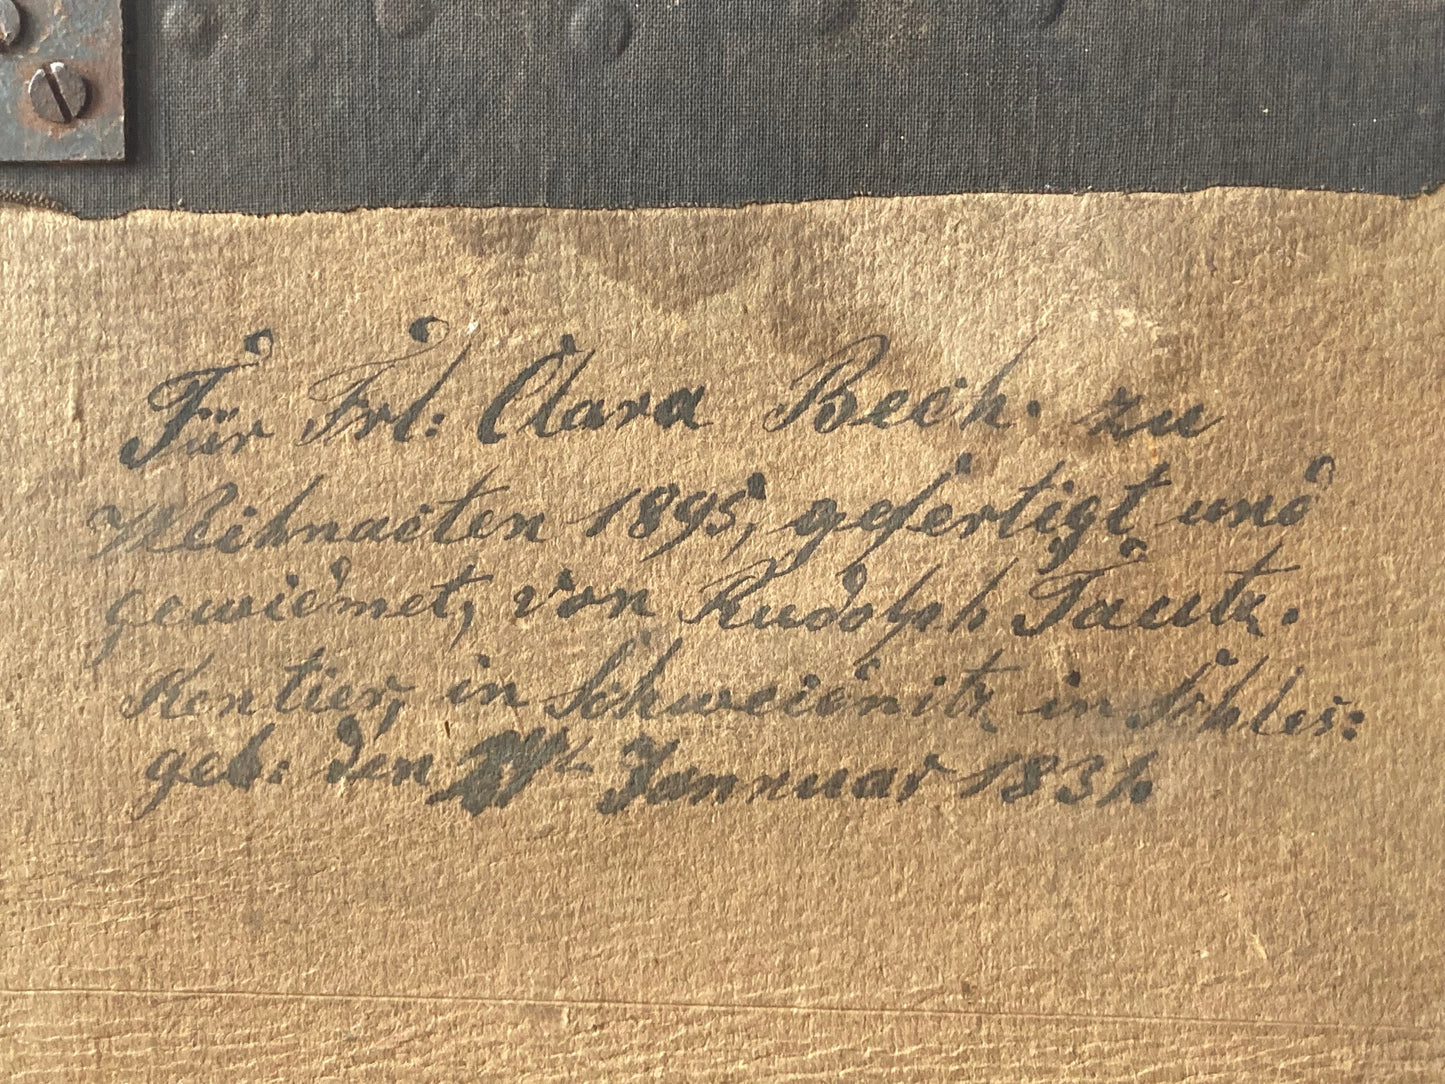 Für Frl: Clara Bech. zu
Weihnacten 1895, gefertigt und
gewidmet, von Rudolph Täutz.
Rentier, in Schweidnitz in Schles:
geb: den Jannuar